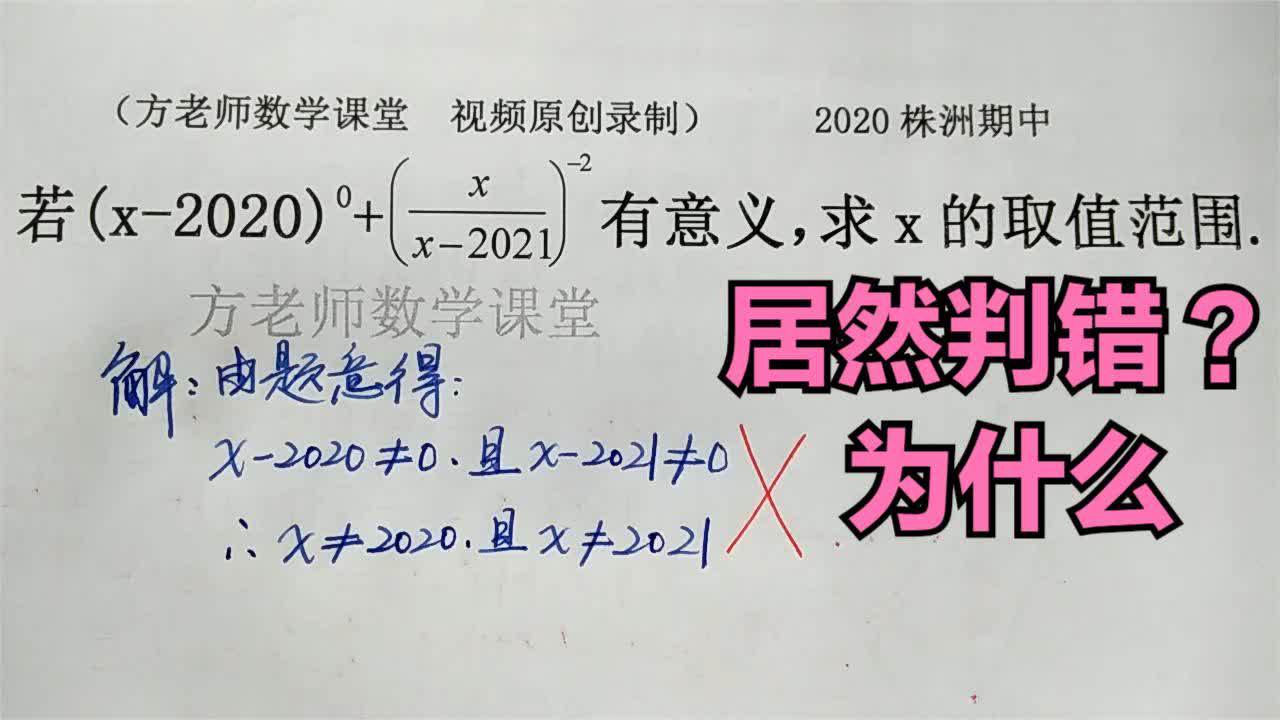 （方老师数学课堂 视频原创录制） 2020 株洲期中
若(x-2020)⁰+(x/(x-2021))⁻²有意义,求 x 的取值范围.
方老师数学课堂
居然判错？
解：由题意得：
为什么
x-2020≠0.且x-2021≠0
∴x≠2020.且x≠2021